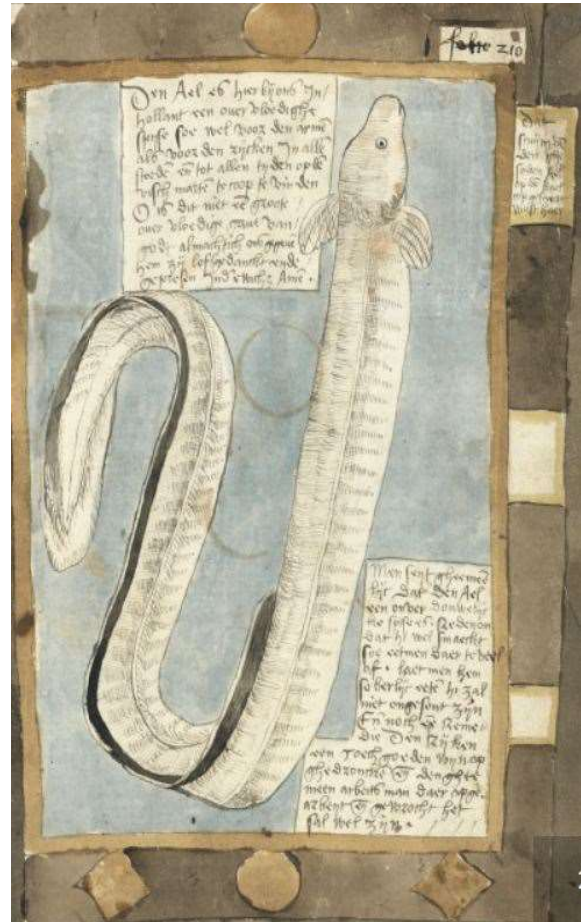 folio 210
Den Ael es hier bij ons In
hollant een over vloedighe
spise soe wel voor den armen
als voor den rijcken In alle
steden en tot allen tijden op de
visch marct te coop te vinden
O is dit niet een groote
over vloedige gave van
godt almachtich
hem zij lof gedanct ende
gepresen Amen.
Dat
den
Men seit ghemeen
Dat den Ael
een onver
spise es. Redenen
Dat hij wel smaect
soe eetmen daer te veel
af. laet men hem
soberlijc eeten hij zal
niet ongesont zijn
En noch een Reme
die Den Rijcken
een goeden wijn op
ghedroncken en den ghe
meen arbeits man daer op ge
arbeyt en gewrocht het
sal wel zijn.